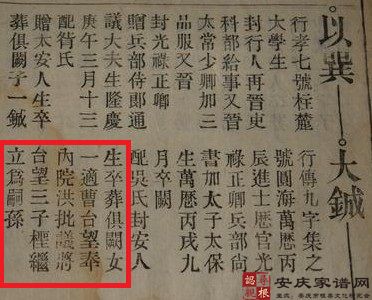 以巽
大鋮
行孝七號麓
太學生
封行人再晉吏
科都給事又晉
太常少卿加三
品服又晉
封光祿正卿
贈兵部侍郎通
議大夫生隆慶
庚午三月十三
配胥氏
贈太安人生卒
葬俱闕子一鋮
行傳九字集之
號圓海萬歷丙
辰進士歷官光
祿正卿兵部尚
書加太子太保
生萬歷丙戌九
月卒闕
配吳氏封安人
生卒葬俱闕女
一適曹台望奉
內院洪批議將
台望三子檉繼
立爲嗣孫
安庆家谱网